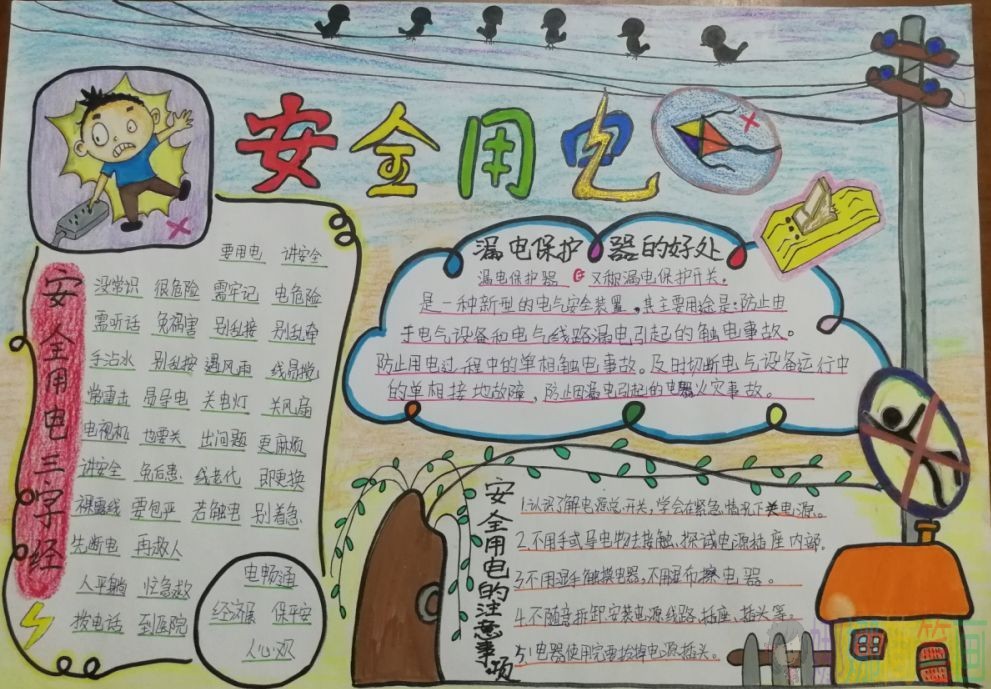 安全用电
安全用电三字经
要用电 讲安全
没常识 很危险 需牢记 电危险
需听话 免祸害 别乱接 别乱牵
手沾水 别乱按 遇风雨 线易搅
常重击 易导电 关电灯 关风扇
电视机 也要关 出问题 更麻烦
讲安全 免后患 线老代 即更换
裸露线 要包严 若触电 别着急
先断电 再救人
人平躺 忙急救
拨电话 到医院
电畅通
经济展 保平安
人心欢
漏电保护器的好处
漏电保护器 又称漏电保护开关。
是一种新型的电气安全装置，其主要用途是：防止由
于电气设备和电气线路漏电引起的触电事故。
防止用电过程中的单相触电事故。及时切断电气设备运行中
的单相接地故障，防止因漏电引起的电器火灾事故。
安全用电的注意事项
1.认识了解电源总开关，学会在紧急情况下关电源。
2.不用手或导电物去接触、探试电源插座内部。
3.不用湿手触摸电器，不用湿布擦电器。
4.不随意拆卸、安装电源线路、插座、插头等。
5.电器使用完要拔掉电源插头。